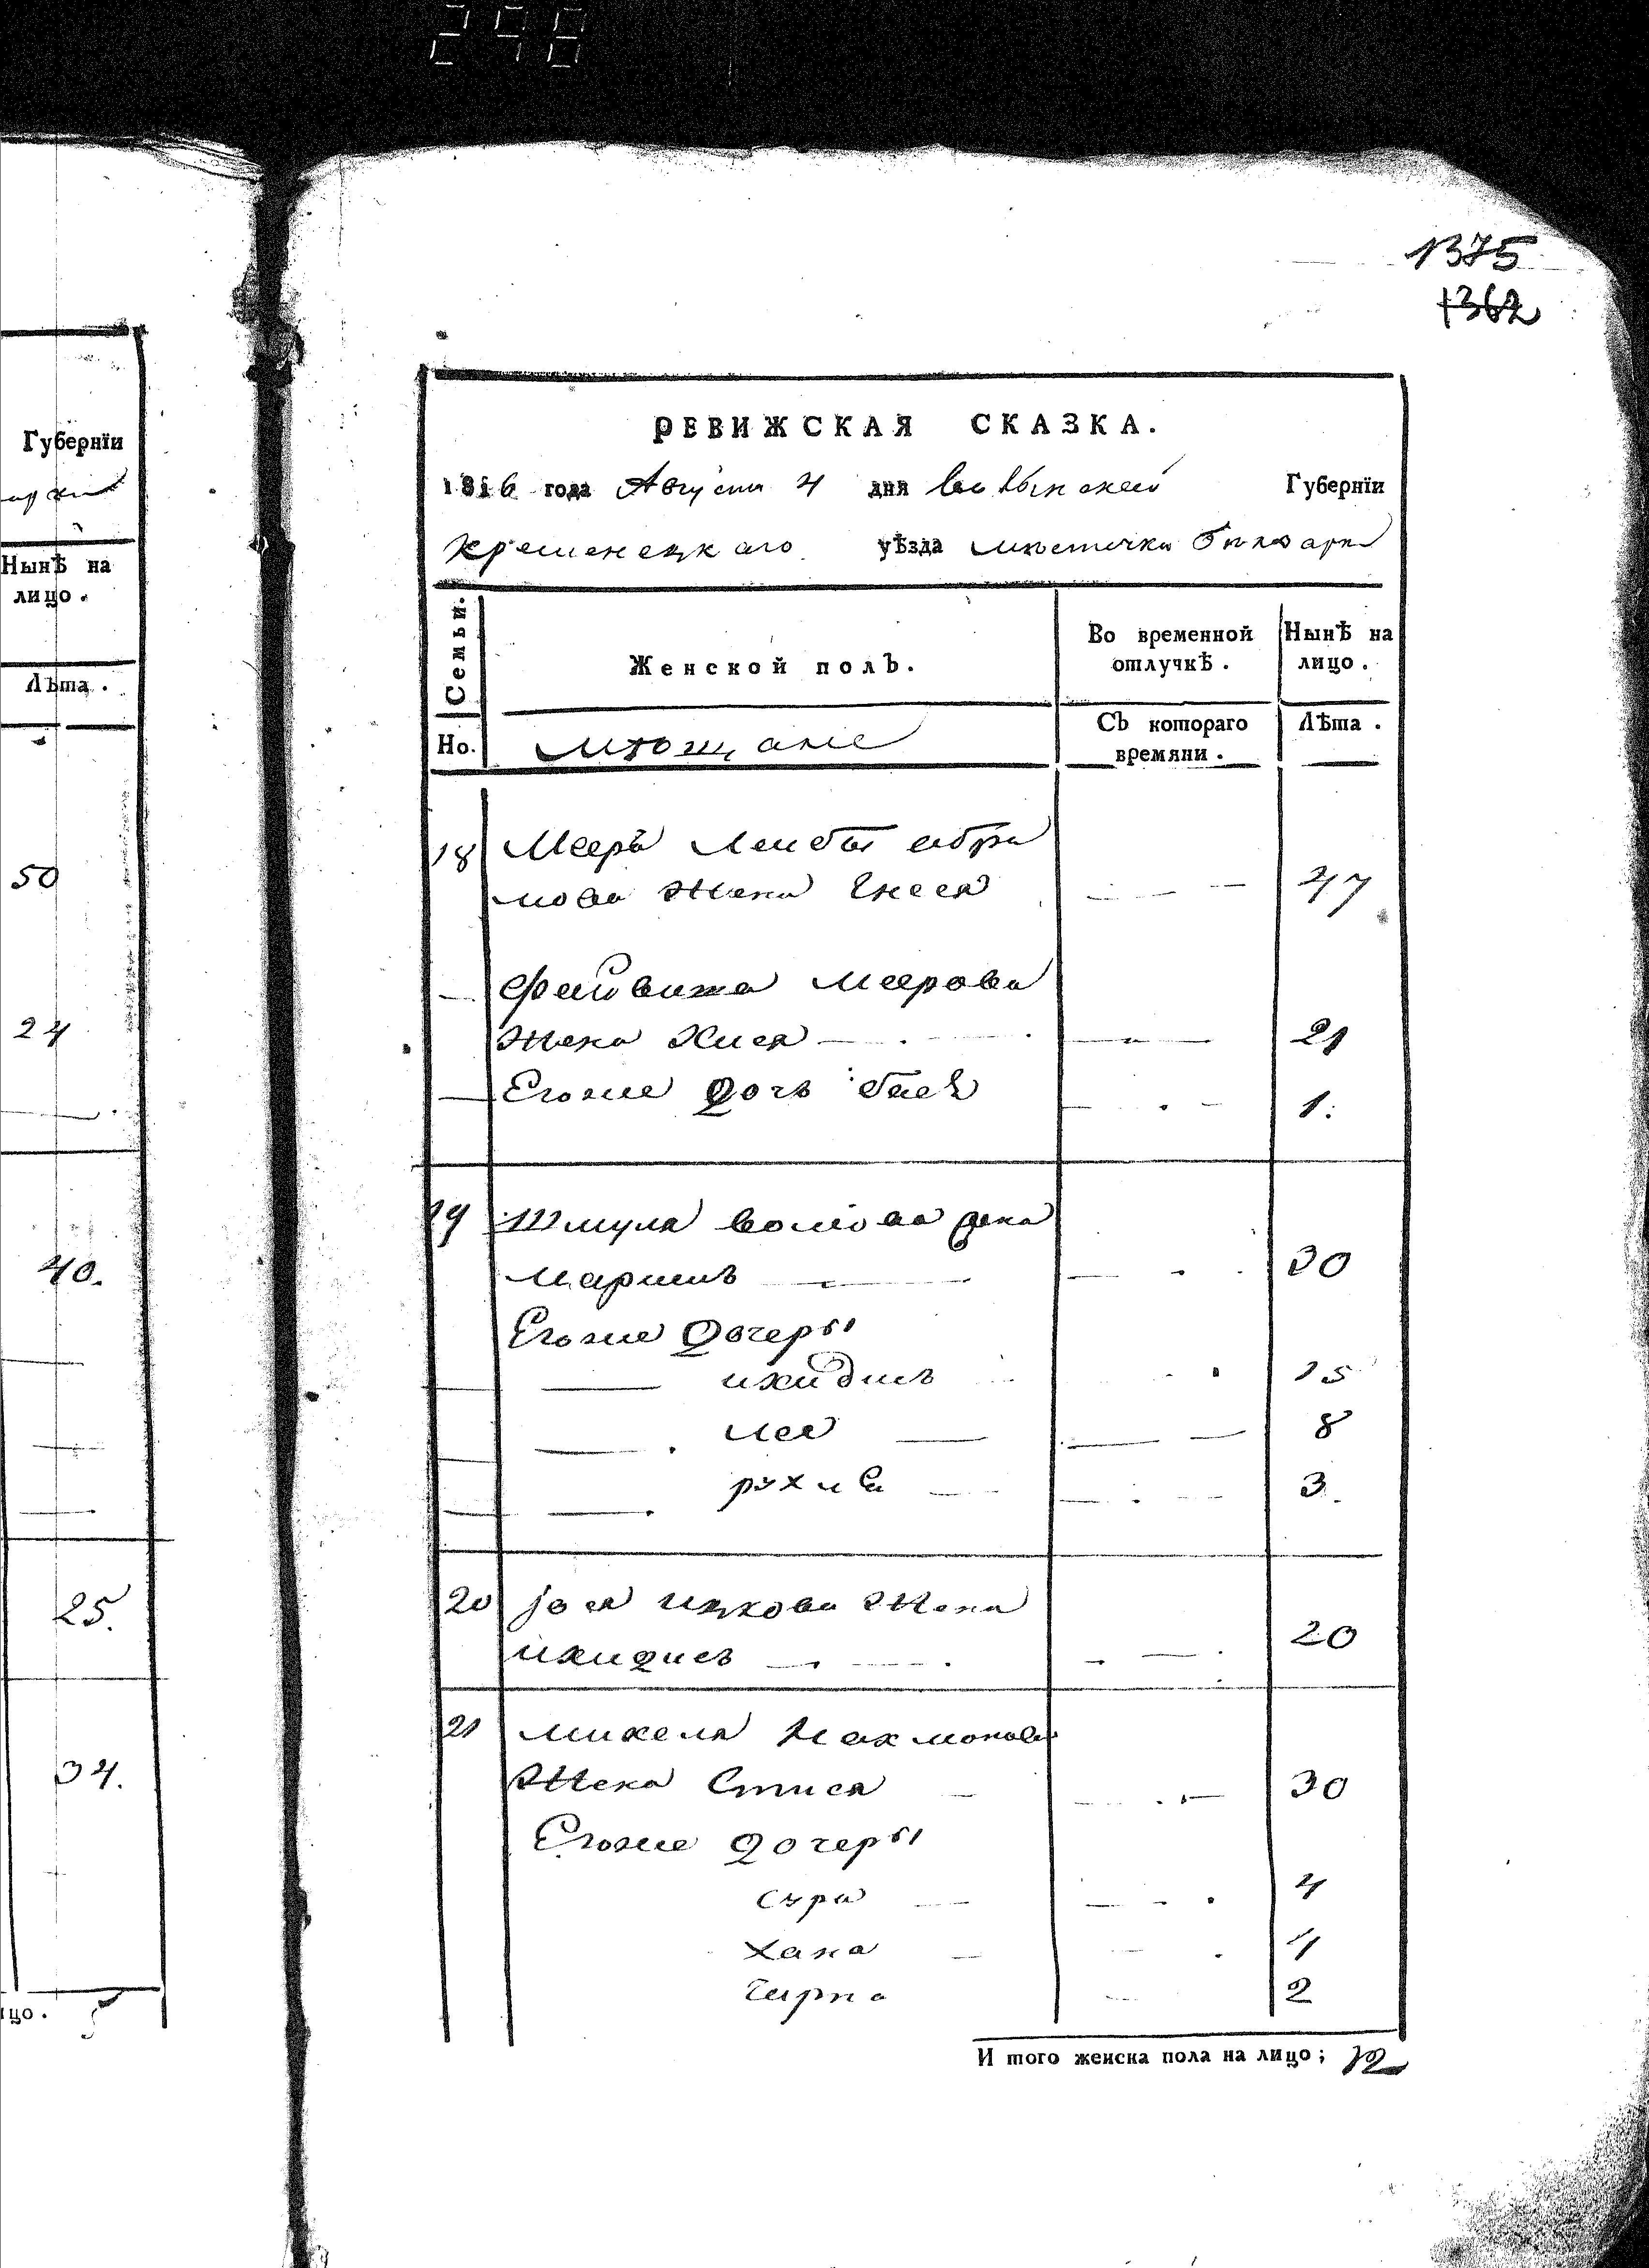 298
1375
1362
Губернїи
Нынѣ на
лицо.
Лѣта.
50
24
40.
25.
34.
цо.
5
РЕВИЖСКАЯ СКАЗКА.
1816 года Августа 4 дня волынской Губернїи
кременецкаго уѣзда местечка
Семьи.
Женской полъ.
Во временной
отлучкѣ.
Нынѣ на
лицо.
Но.
мѣщане
Съ котораго
времяни.
Лѣта.
18 Меера Лейбы абра
мова жена Енея 47
— Файвиша меерова
жена Хися 21
— Егоже дочь бася 1.
19 Шмуля волкова жена
мариамъ 30
Егоже дочеры
ихидисъ 15
лея 8
рухля 3.
20 Jося ицкова жена
ихидисъ 20
21 михеля нахманова
жена Стися 30
Егоже дочеры
сура 4
хана 4
чирна 2
И того женска пола на лицо; 12